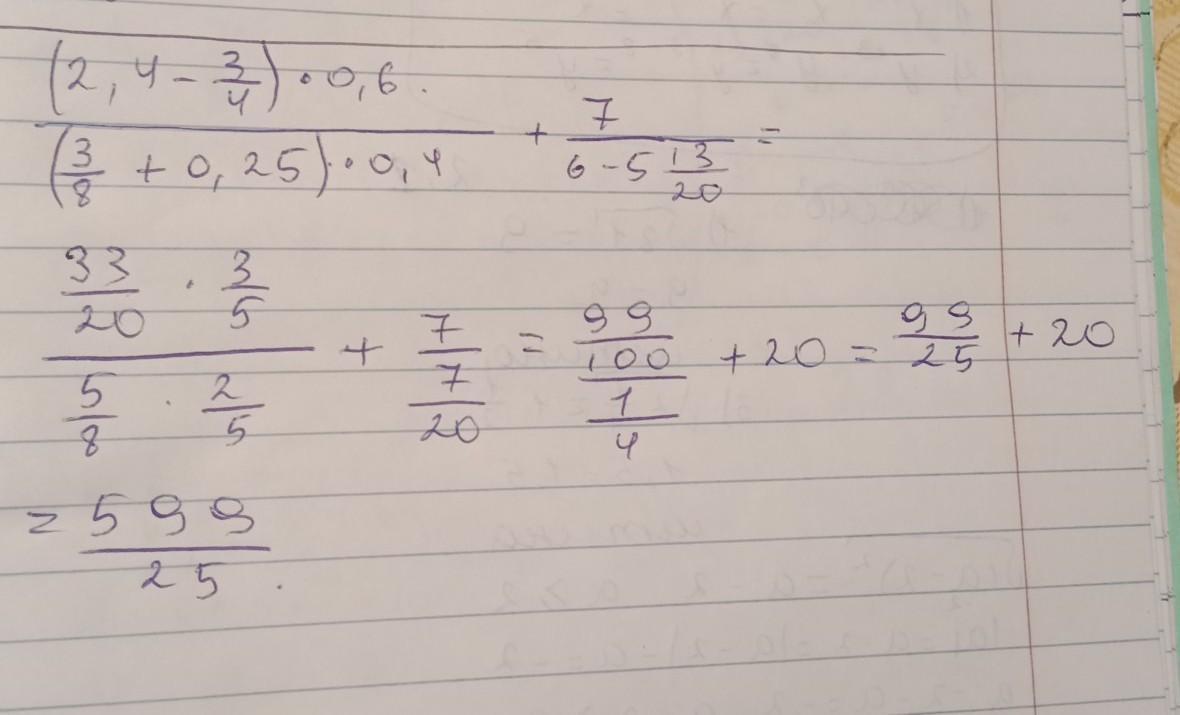 (2,4 - 3/4) · 0,6.
(3/8 + 0,25) · 0,4 + 7/(6 - 5 13/20) =
33/20 · 3/5
5/8 · 2/5 + 7/(7/20) = (99/100)/(1/4) + 20 = 99/25 + 20
= 599/25.